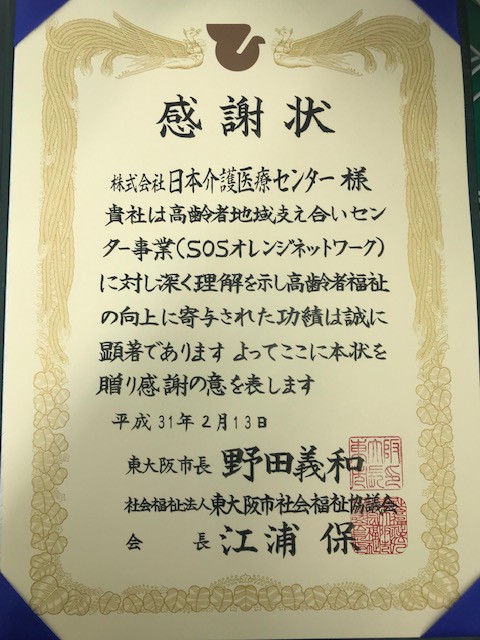 感謝状
株式会社日本介護医療センター 様
貴社は高齢者地域支え合いセン
ター事業(SOSオレンジネットワーク)
に対し深く理解を示し高齢者福祉
の向上に寄与された功績は誠に
顕著であります よってここに本状を
贈り感謝の意を表します
平成31年2月13日
東大阪市長 野田義和
社会福祉法人東大阪市社会福祉協議会
会長 江浦保